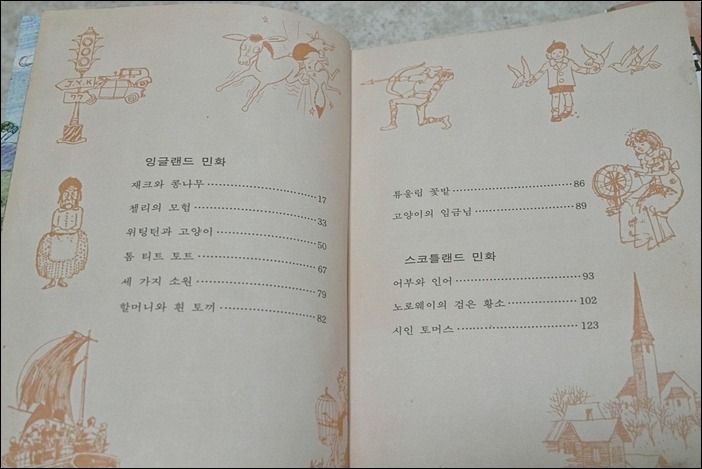 J.Y.K
77
잉글랜드 민화
재크와 콩나무 17
젤리의 모험 33
위팅턴과 고양이 50
톰 티트 토트 67
세 가지 소원 79
할머니와 흰 토끼 82
튤울립 꽃밭 86
고양이의 임금님 89
스코틀랜드 민화
어부와 인어 93
노로웨이의 검은 황소 102
시인 토머스 123